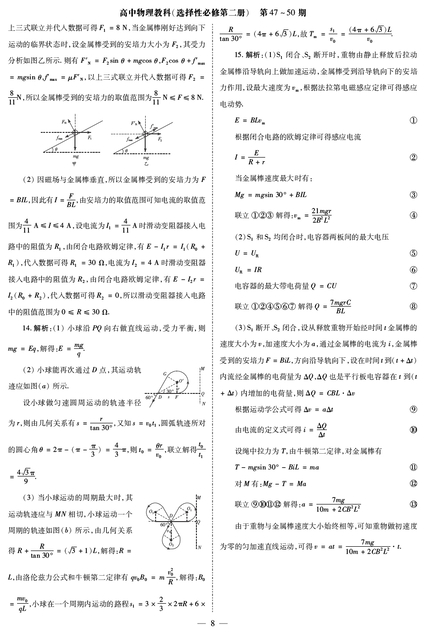 高中物理教科(选择性必修第二册)　第 47 ~ 50 期
上三式联立并代入数据可得 F₁ = 8 N,当金属棒刚好达到向下
运动的临界状态时,设金属棒受到的安培力大小为 F₂,其受力
分析如图乙所示. 则有 F′N = F₂sin θ + mgcos θ,F₂cos θ + f′max
= mgsin θ,f′max = μF′N,以上三式联立并代入数据可得 F₂ =
8/11 N,所以金属棒受到的安培力的取值范围为 8/11 N ≤ F ≤ 8 N.
甲　乙
(2) 因磁场与金属棒垂直,所以金属棒受到的安培力为 F
= BIL,因此有 I = F/BL,由安培力的取值范围可知电流的取值范
围为 4/11 A ≤ I ≤ 4 A,设电流为 I₁ = 4/11 A 时滑动变阻器接入电
路中的阻值为 R₁,由闭合电路欧姆定律,有 E − I₁r = I₁(R₀ +
R₁),代入数据可得 R₁ = 30 Ω,电流为 I₂ = 4 A 时滑动变阻器
接入电路中的阻值为 R₂,由闭合电路欧姆定律,有 E − I₂r =
I₂(R₀ + R₂),代入数据可得 R₂ = 0,所以滑动变阻器接入电路
中的阻值范围为 0 ≤ R ≤ 30 Ω.
14. 解析:(1) 小球沿 PQ 向右做直线运动,受力平衡,则
mg = Eq,解得:E = mg/q.
(2) 小球能再次通过 D 点,其运动轨
迹应如图(a) 所示.
设小球做匀速圆周运动的轨迹半径
为 r,则由几何关系有 s = r/tan 30°,又知 s = v₀t₁,圆弧轨迹所对
的圆心角 θ = 2π − (π − π/3) = 4/3 π,则 t₀ = θr/v₀,联立解得 t₀/t₁
= 4√3π/9.
(3) 当小球运动的周期最大时,其
运动轨迹应与 MN 相切,小球运动一个
周期的轨迹如图(b) 所示,由几何关系
得 R + R/tan 30° = (√3 + 1)L,解得:R =
L,由洛伦兹力公式和牛顿第二定律有 qv₀B₀ = m v₀²/R,解得:B₀
= mv₀/qL,小球在一个周期内运动的路程 s₁ = 3 × 2/3 × 2πR + 6 ×
R/tan 30° = (4π + 6√3)L,故 Tm = s₁/v₀ = (4π + 6√3)L/v₀.
15. 解析:(1)S₁ 闭合、S₂ 断开时,重物由静止释放后拉动
金属棒沿导轨向上做加速运动,金属棒受到沿导轨向下的安培
力作用,设最大速度为 vm,根据法拉第电磁感应定律可得感应
电动势
E = BLvm ①
根据闭合电路的欧姆定律可得感应电流
I = E/(R + r) ②
当金属棒速度最大时有:
Mg = mgsin 30° + BIL ③
联立 ①②③ 解得:vm = 21mgr/2B²L² ④
(2)S₁ 和 S₂ 均闭合时,电容器两板间的最大电压
U = UR ⑤
UR = IR ⑥
电容器的最大带电荷量 Q = CU ⑦
联立 ①②④⑤⑥⑦ 解得 Q = 7mgrC/BL ⑧
(3)S₁ 断开、S₂ 闭合,设从释放重物开始经时间 t 金属棒的
速度大小为 v,加速度大小为 a,通过金属棒的电流为 i,金属棒
受到的安培力 F = BiL,方向沿导轨向下,设在时间 t 到(t + Δt)
内流经金属棒的电荷量为 ΔQ,ΔQ 也是平行板电容器在 t 到(t
+ Δt) 内增加的电荷量,则 ΔQ = CBL · Δv
根据运动学公式可得 Δv = aΔt ⑨
由电流的定义式可得 i = ΔQ/Δt ⑩
设绳中拉力为 T,由牛顿第二定律,对金属棒有
T − mgsin 30° − BiL = ma ⑪
对 M 有:Mg − T = Ma ⑫
联立 ⑨⑩⑪⑫ 解得:a = 7mg/(10m + 2CB²L²) ⑬
由于重物与金属棒速度大小始终相等,可知重物做初速度
为零的匀加速直线运动,可得 v = at = 7mg/(10m + 2CB²L²) · t.
— 8 —